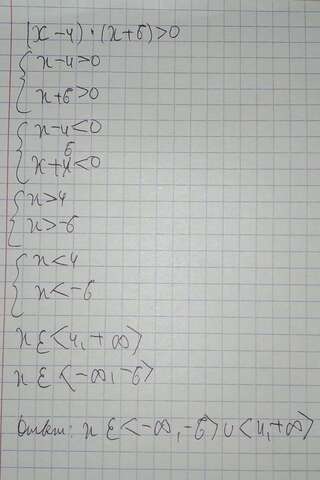 (x-4)·(x+6)>0
x-4>0
x+6>0
x-4<0
x+6<0
x>4
x>-6
x<4
x<-6
x ∈ <4, +∞>
x ∈ <-∞, -6>
Ответ: x ∈ <-∞, -6> ∪ <4, +∞>